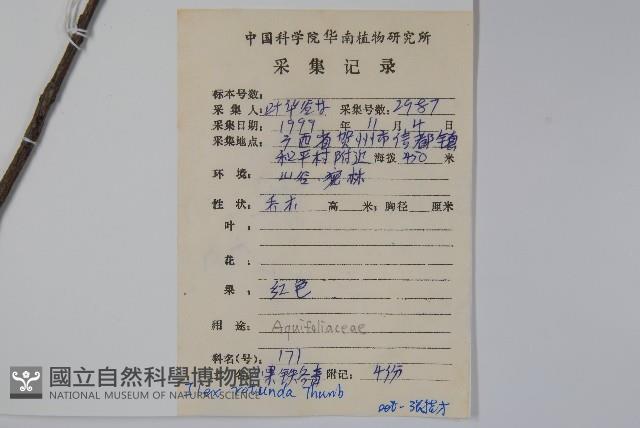 中国科学院华南植物研究所
采集记录
标本号数:
采集人: 叶华谷 采集号数: 2987
采集日期: 1999 年 11 月 4 日
采集地点: 广西省贺州市信都镇
和平村附近 海拔 450 米
环境: 山谷.疏林
性状: 乔木 高 米; 胸径 厘米
叶:
花:
果: 红色
用途: Aquifoliaceae
科名(号): 171
果铁冬青 附记: 4份
Ilex rotunda Thunb
det-张
國立自然科學博物館
NATIONAL MUSEUM OF NATURAL SCIENCE